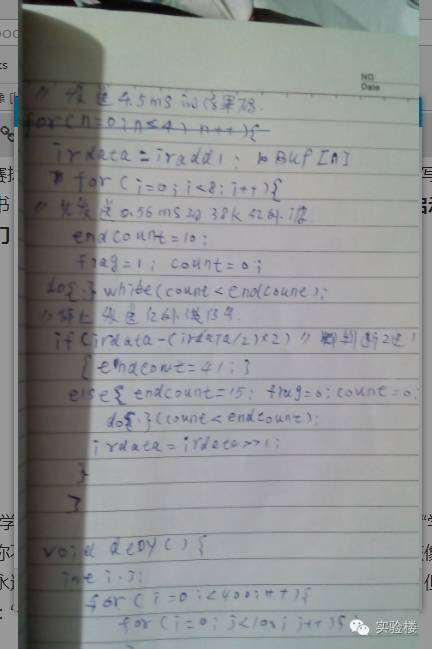 NO
Date
// 发送4.5ms的结果码.
for(n=0;n≤4;n++){
irdata=iradd1; pBuf[n]
for(i=0;i<8;i++){
// 先发送0.56ms的38K红外波
endcount=10;
frag=1; count=0;
do{·}while(count<endcount);
// 停止发送红外信号
if(irdata-(irdata/2)*2) // 判断 2进1
{endcont=41;}
else{endcount=15; frag=0; count=0;
do{·}(count<endcount);
irdata=irdata>>1;
}
}
void deDY(){
int i.j;
for(i=0;i<400;i++){
for(i=0;j<10;j++){
实验楼